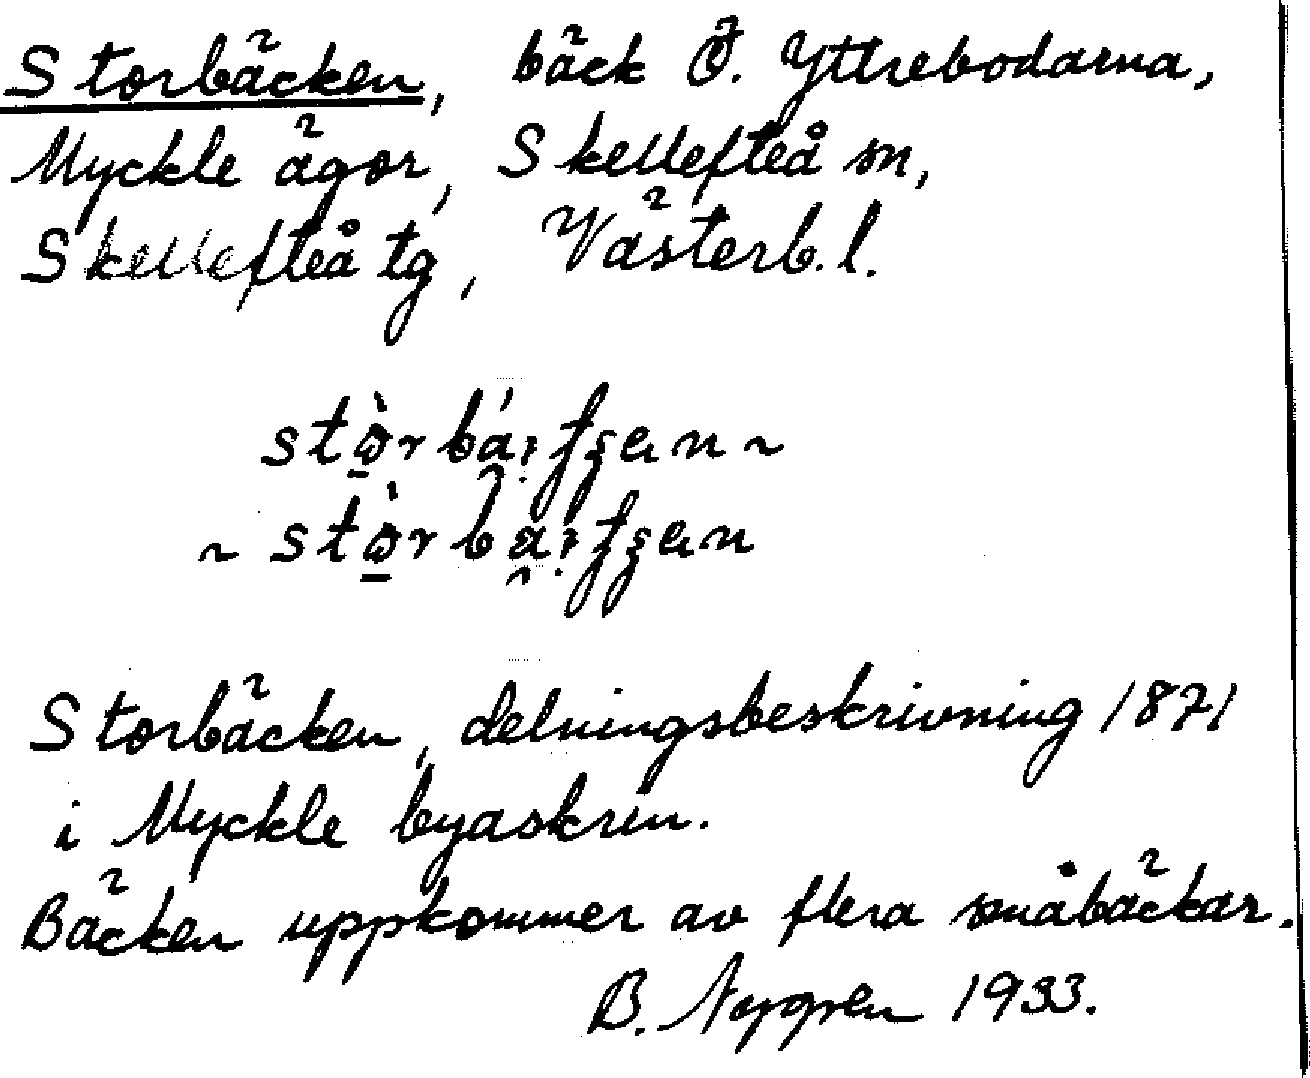 Storbäcken, bäck Ö. Yttrebodarna,
Myckle ägor, Skellefteå sn,
Skellefteå tg, Västerb. l.
Storbäcken, delningsbeskrivning 1871
i Myckle byaskrin.
Bäcken uppkommer av flera småbäckar.
B. Nygren 1933.